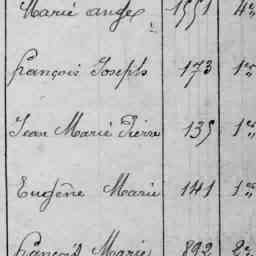 Marie ange 1551 4e
François Joseph 173 1e
Jean Marie Pierre 135 1e
Eugène Marie 141 1e
François Marie 892 2e